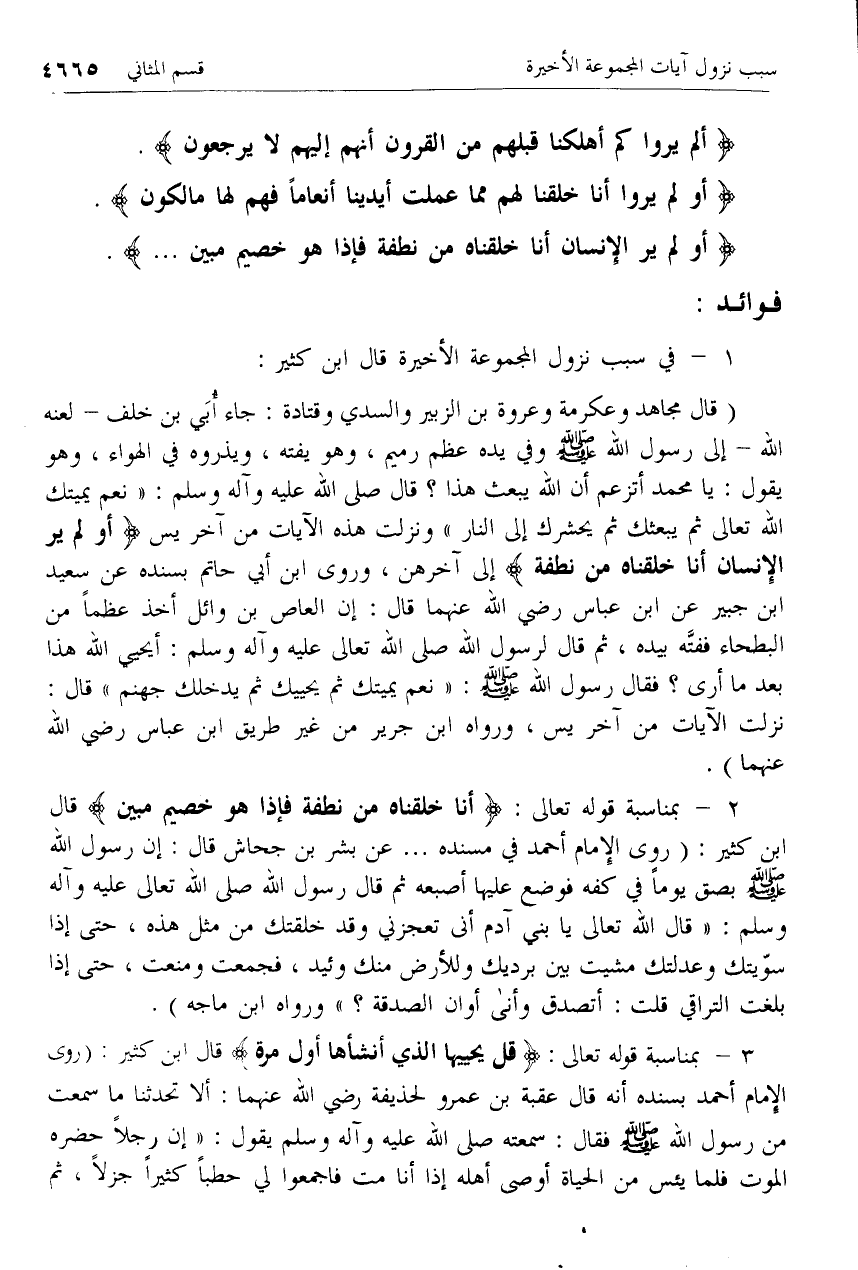 سبب نزول آيات المجموعة الأخيرة قسم المثاني ٤٦٦٥
﴿ ألم يروا كم أهلكنا قبلهم من القرون أنهم إليهم لا يرجعون ﴾ .
﴿ أو لم يروا أنا خلقنا لهم مما عملت أيدينا أنعاماً فهم لها مالكون ﴾ .
﴿ أو لم ير الإنسان أنا خلقناه من نطفة فإذا هو خصيم مبين ... ﴾ .
فـوائـد :
١ – في سبب نزول المجموعة الأخيرة قال ابن كثير :
( قال مجاهد وعكرمة وعروة بن الزبير والسدي وقتادة : جاء أُبَي بن خلف – لعنه
الله – إلى رسول الله ﷺ وفي يده عظم رميم ، وهو يفته ، ويذروه في الهواء ، وهو
يقول : يا محمد أتزعم أن الله يبعث هذا ؟ قال صلى الله عليه وآله وسلم : « نعم يميتك
الله تعالى ثم يبعثك ثم يحشرك إلى النار » ونزلت هذه الآيات من آخر يس ﴿ أو لم ير
الإنسان أنا خلقناه من نطفة ﴾ إلى آخرهن ، وروى ابن أبي حاتم بسنده عن سعيد
ابن جبير عن ابن عباس رضي الله عنهما قال : إن العاص بن وائل أخذ عظماً من
البطحاء ففتَّه بيده ، ثم قال لرسول الله صلى الله تعالى عليه وآله وسلم : أيحيي الله هذا
بعد ما أرى ؟ فقال رسول الله ﷺ : « نعم يميتك ثم يحييك ثم يدخلك جهنم » قال :
نزلت الآيات من آخر يس ، ورواه ابن جرير من غير طريق ابن عباس رضي الله
عنهما ) .
٢ – بمناسبة قوله تعالى : ﴿ أنا خلقناه من نطفة فإذا هو خصيم مبين ﴾ قال
ابن كثير : ( روى الإمام أحمد في مسنده ... عن بشر بن جحاش قال : إن رسول الله
ﷺ بصق يوماً في كفه فوضع عليها أصبعه ثم قال رسول الله صلى الله تعالى عليه وآله
وسلم : « قال الله تعالى يا بني آدم أنى تعجزني وقد خلقتك من مثل هذه ، حتى إذا
سوّيتك وعدلتك مشيت بين برديك وللأرض منك وئيد ، فجمعت ومنعت ، حتى إذا
بلغت التراقي قلت : أتصدق وأنىٰ أوان الصدقة ؟ » ورواه ابن ماجه ) .
٣ – بمناسبة قوله تعالى : ﴿ قل يحييها الذي أنشأها أول مرة ﴾ قال ابن كثير : ( روى
الإمام أحمد بسنده أنه قال عقبة بن عمرو لحذيفة رضي الله عنهما : ألا تحدثنا ما سمعت
من رسول الله ﷺ فقال : سمعته صلى الله عليه وآله وسلم يقول : « إن رجلاً حضره
الموت فلما يئس من الحياة أوصى أهله إذا أنا مت فاجمعوا لي حطباً كثيراً جزلاً ، ثم